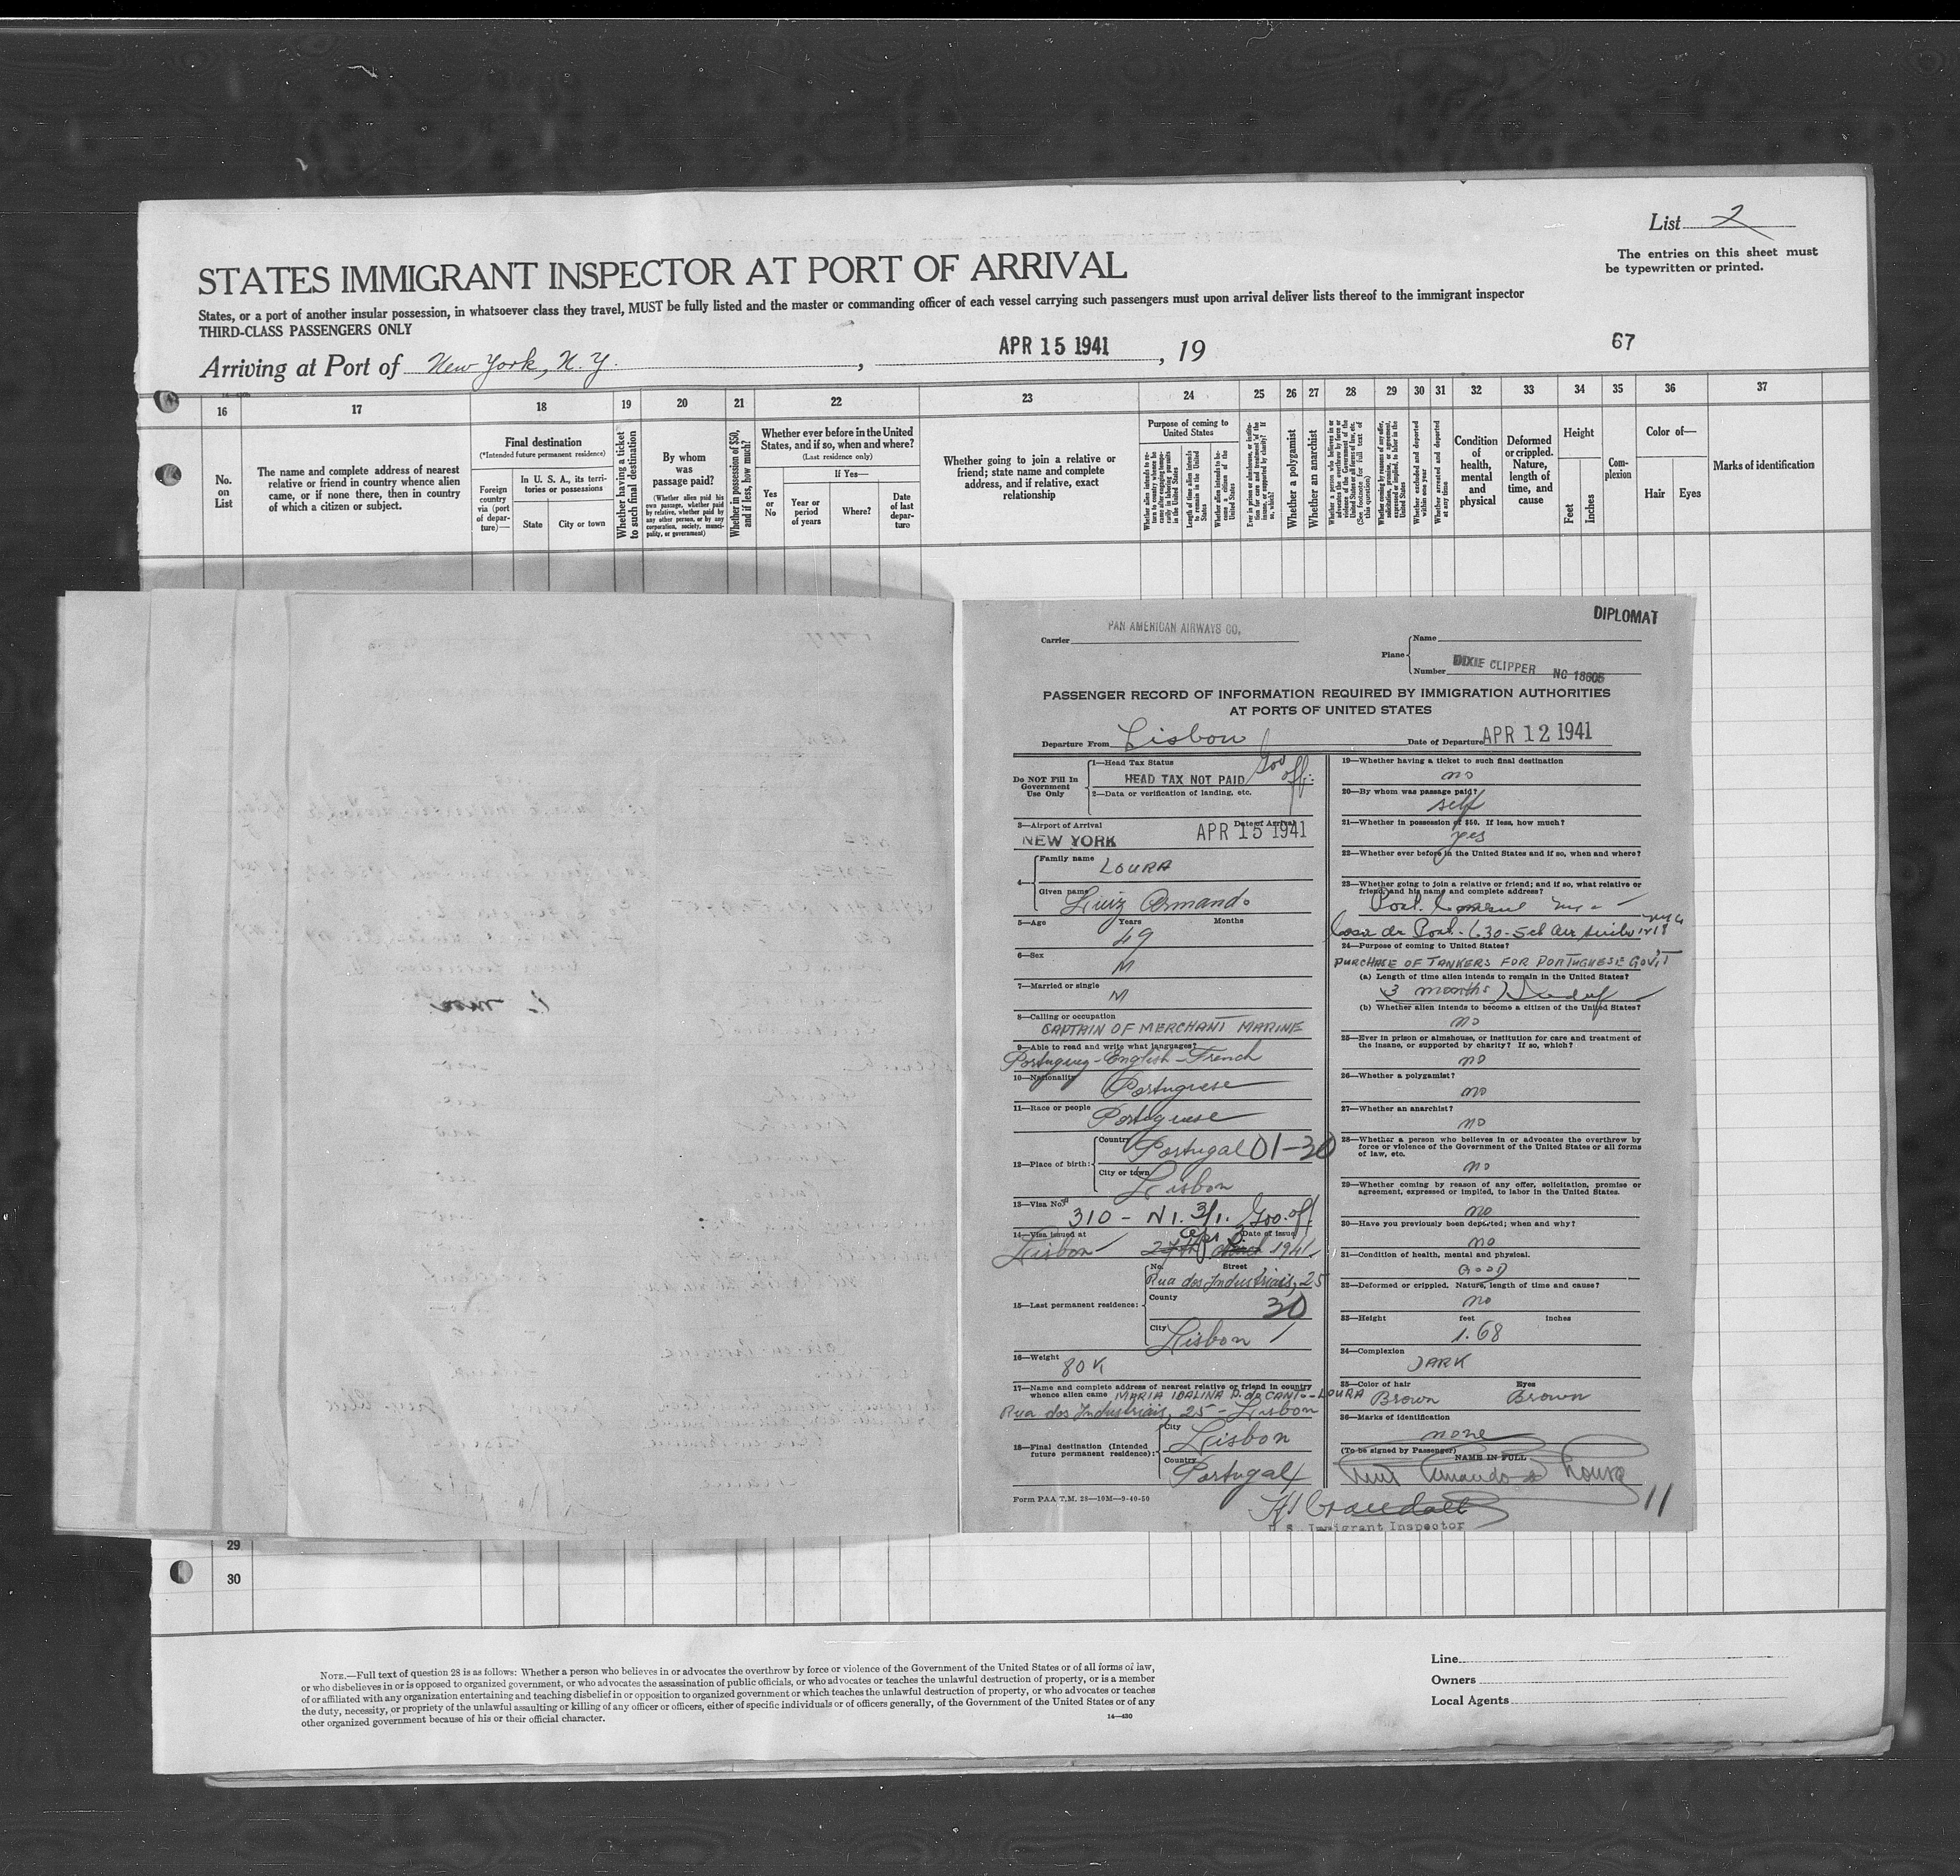 List 2
The entries on this sheet must
be typewritten or printed.
STATES IMMIGRANT INSPECTOR AT PORT OF ARRIVAL
States, or a port of another insular possession, in whatsoever class they travel, MUST be fully listed and the master or commanding officer of each vessel carrying such passengers must upon arrival deliver lists thereof to the immigrant inspector
THIRD-CLASS PASSENGERS ONLY
Arriving at Port of New York, N. Y. , APR 15 1941 , 19
67
16 17 18 19 20 21 22 23 24 25 26 27 28 29 30 31 32 33 34 35 36 37
No.
on
List
The name and complete address of nearest
relative or friend in country whence alien
came, or if none there, then in country
of which a citizen or subject.
Final destination
(*Intended future permanent residence)
Foreign
country
via (port
of depar-
ture)—
In U. S. A., its terri-
tories or possessions
State
City or town
Whether having a ticket
to such final destination
By whom
was
passage paid?
(Whether alien paid his
own passage, whether paid
by relative, whether paid by
any other person, or by any
corporation, society, munici-
pality, or government)
Whether in possession of $50,
and if less, how much?
Whether ever before in the United
States, and if so, when and where?
(Last residence only)
If Yes—
Yes
or
No
Year or
period
of years
Where?
Date
of last
depar-
ture
Whether going to join a relative or
friend; state name and complete
address, and if relative, exact
relationship
Purpose of coming to
United States
Length of time alien intends
to remain in the United
States
Whether alien intends to be-
come a citizen of the
United States
Whether a polygamist
Whether an anarchist
Whether excluded and deported
within one year
Whether arrested and deported
at any time
Condition
of
health,
mental
and
physical
Deformed
or crippled.
Nature,
length of
time, and
cause
Height
Feet
Inches
Com-
plexion
Color of—
Hair
Eyes
Marks of identification
DIPLOMAT
Carrier PAN AMERICAN AIRWAYS CO.
Plane
Name
Number DIXIE CLIPPER NC 18605
PASSENGER RECORD OF INFORMATION REQUIRED BY IMMIGRATION AUTHORITIES
AT PORTS OF UNITED STATES
Departure From Lisbon Date of Departure APR 12 1941
Do NOT Fill In
Government
Use Only
1—Head Tax Status
HEAD TAX NOT PAID Gov off.
2—Data or verification of landing, etc.
3—Airport of Arrival Date of Arrival
NEW YORK APR 15 1941
4—
Family name LOURA
Given name Luiz Armando
5—Age Years Months
49
6—Sex
M
7—Married or single
M
8—Calling or occupation
CAPTAIN OF MERCHANT MARINE
9—Able to read and write what languages?
Portuguez-English-French
10—Nationality
Portuguese
11—Race or people
Portuguese
12—Place of birth:
Country Portugal 01-30
City or town Lisbon
13—Visa No.
310 - N1. 3/1. Gov. off.
14—Visa issued at Date of issue
Lisbon 27th March Apr 3 1941
15—Last permanent residence:
No. Street
Rua dos Industriais, 25
County
30
City Lisbon
16—Weight
80 K
17—Name and complete address of nearest relative or friend in country
whence alien came MARIA IDALINA P. do CANTO-LOURA
Rua dos Industriais, 25 - Lisbon
18—Final destination (Intended
future permanent residence):
City Lisbon
Country Portugal
Form PAA T.M. 28—10M—9-40-50
19—Whether having a ticket to such final destination
no
20—By whom was passage paid?
self
21—Whether in possession of $50. If less, how much?
yes
22—Whether ever before in the United States and if so, when and where?
23—Whether going to join a relative or friend; and if so, what relative or
friend and his name and complete address?
Port. Consul
Casa de Port. 630-5th
24—Purpose of coming to United States?
PURCHASE OF TANKERS FOR PORTUGUESE GOV'T
(a) Length of time alien intends to remain in the United States?
(3 months)
(b) Whether alien intends to become a citizen of the United States?
no
25—Ever in prison or almshouse, or institution for care and treatment of
the insane, or supported by charity? If so, which?
no
26—Whether a polygamist?
no
27—Whether an anarchist?
no
28—Whether a person who believes in or advocates the overthrow by
force or violence of the Government of the United States or all forms
of law, etc.
no
29—Whether coming by reason of any offer, solicitation, promise or
agreement, expressed or implied, to labor in the United States.
no
30—Have you previously been deported; when and why?
no
31—Condition of health, mental and physical.
GOOD
32—Deformed or crippled. Nature, length of time and cause?
no
33—Height feet inches
1.68
34—Complexion
DARK
35—Color of hair Eyes
Brown Brown
36—Marks of identification
none
(To be signed by Passenger)
NAME IN FULL
Luiz Armando Loura
11
U. S. Immigrant Inspector
29
30
NOTE.—Full text of question 28 is as follows: Whether a person who believes in or advocates the overthrow by force or violence of the Government of the United States or of all forms of law,
or who disbelieves in or is opposed to organized government, or who advocates the assassination of public officials, or who advocates or teaches the unlawful destruction of property, or is a member
of or affiliated with any organization entertaining and teaching disbelief in or opposition to organized government or which teaches the unlawful destruction of property, or who advocates or teaches
the duty, necessity, or propriety of the unlawful assaulting or killing of any officer or officers, either of specific individuals or of officers generally, of the Government of the United States or of any
other organized government because of his or their official character.
14—430
Line
Owners
Local Agents